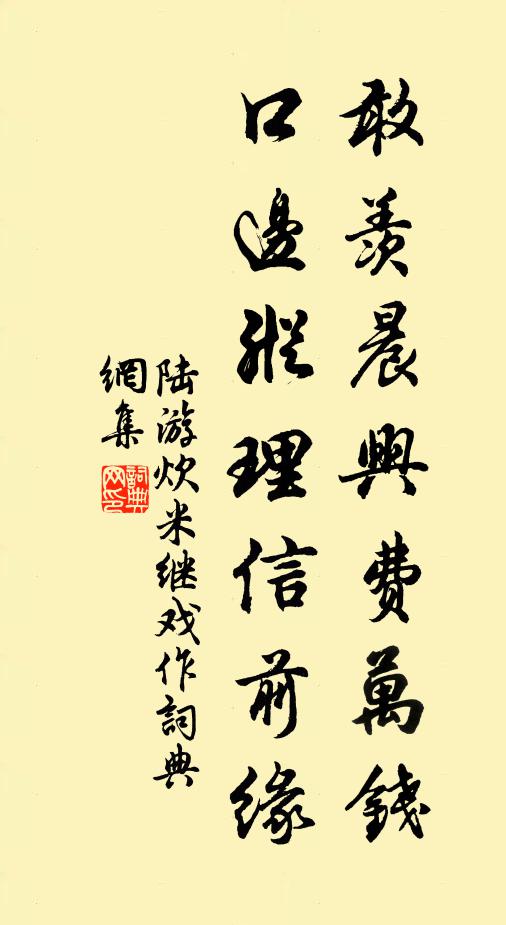 敢羨晨興費萬錢
口邊縱理信前緣
陆游炊米继戏作詞典
網集
詞典
网印